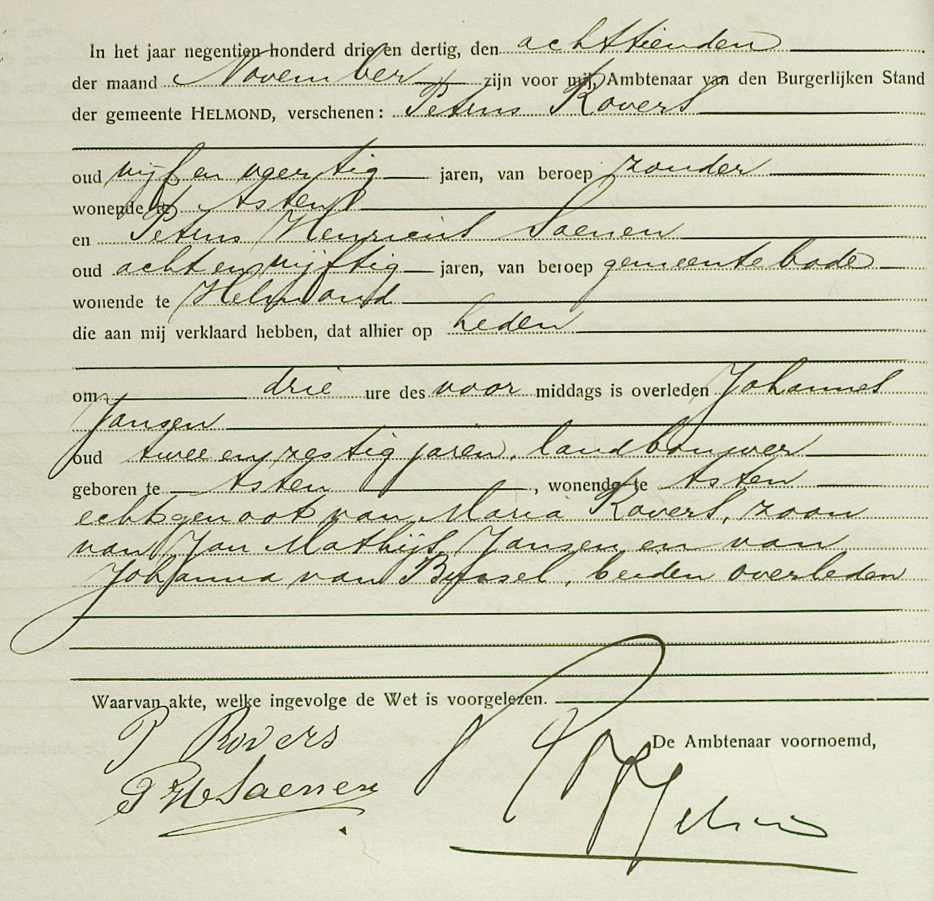 In het jaar negentien honderd drie en dertig, den achttienden
der maand November zijn voor mij, Ambtenaar van den Burgerlijken Stand
der gemeente HELMOND, verschenen: Petrus Rovers
oud vijf en veertig jaren, van beroep zonder
wonende te Asten
en Petrus Henricus Saenen
oud acht en vijftig jaren, van beroep gemeentebode
wonende te Helmond
die aan mij verklaard hebben, dat alhier op heden
om drie ure des voor middags is overleden Johannes
Jansen
oud twee en zestig jaren, landbouwer
geboren te Asten, wonende te Asten
echtgenoot van Maria Rovers, zoon
van Jan Mathijs Jansen en van
Johanna van Bussel, beiden overleden
Waarvan akte, welke ingevolge de Wet is voorgelezen.
P Rovers
De Ambtenaar voornoemd,
P H Saenen